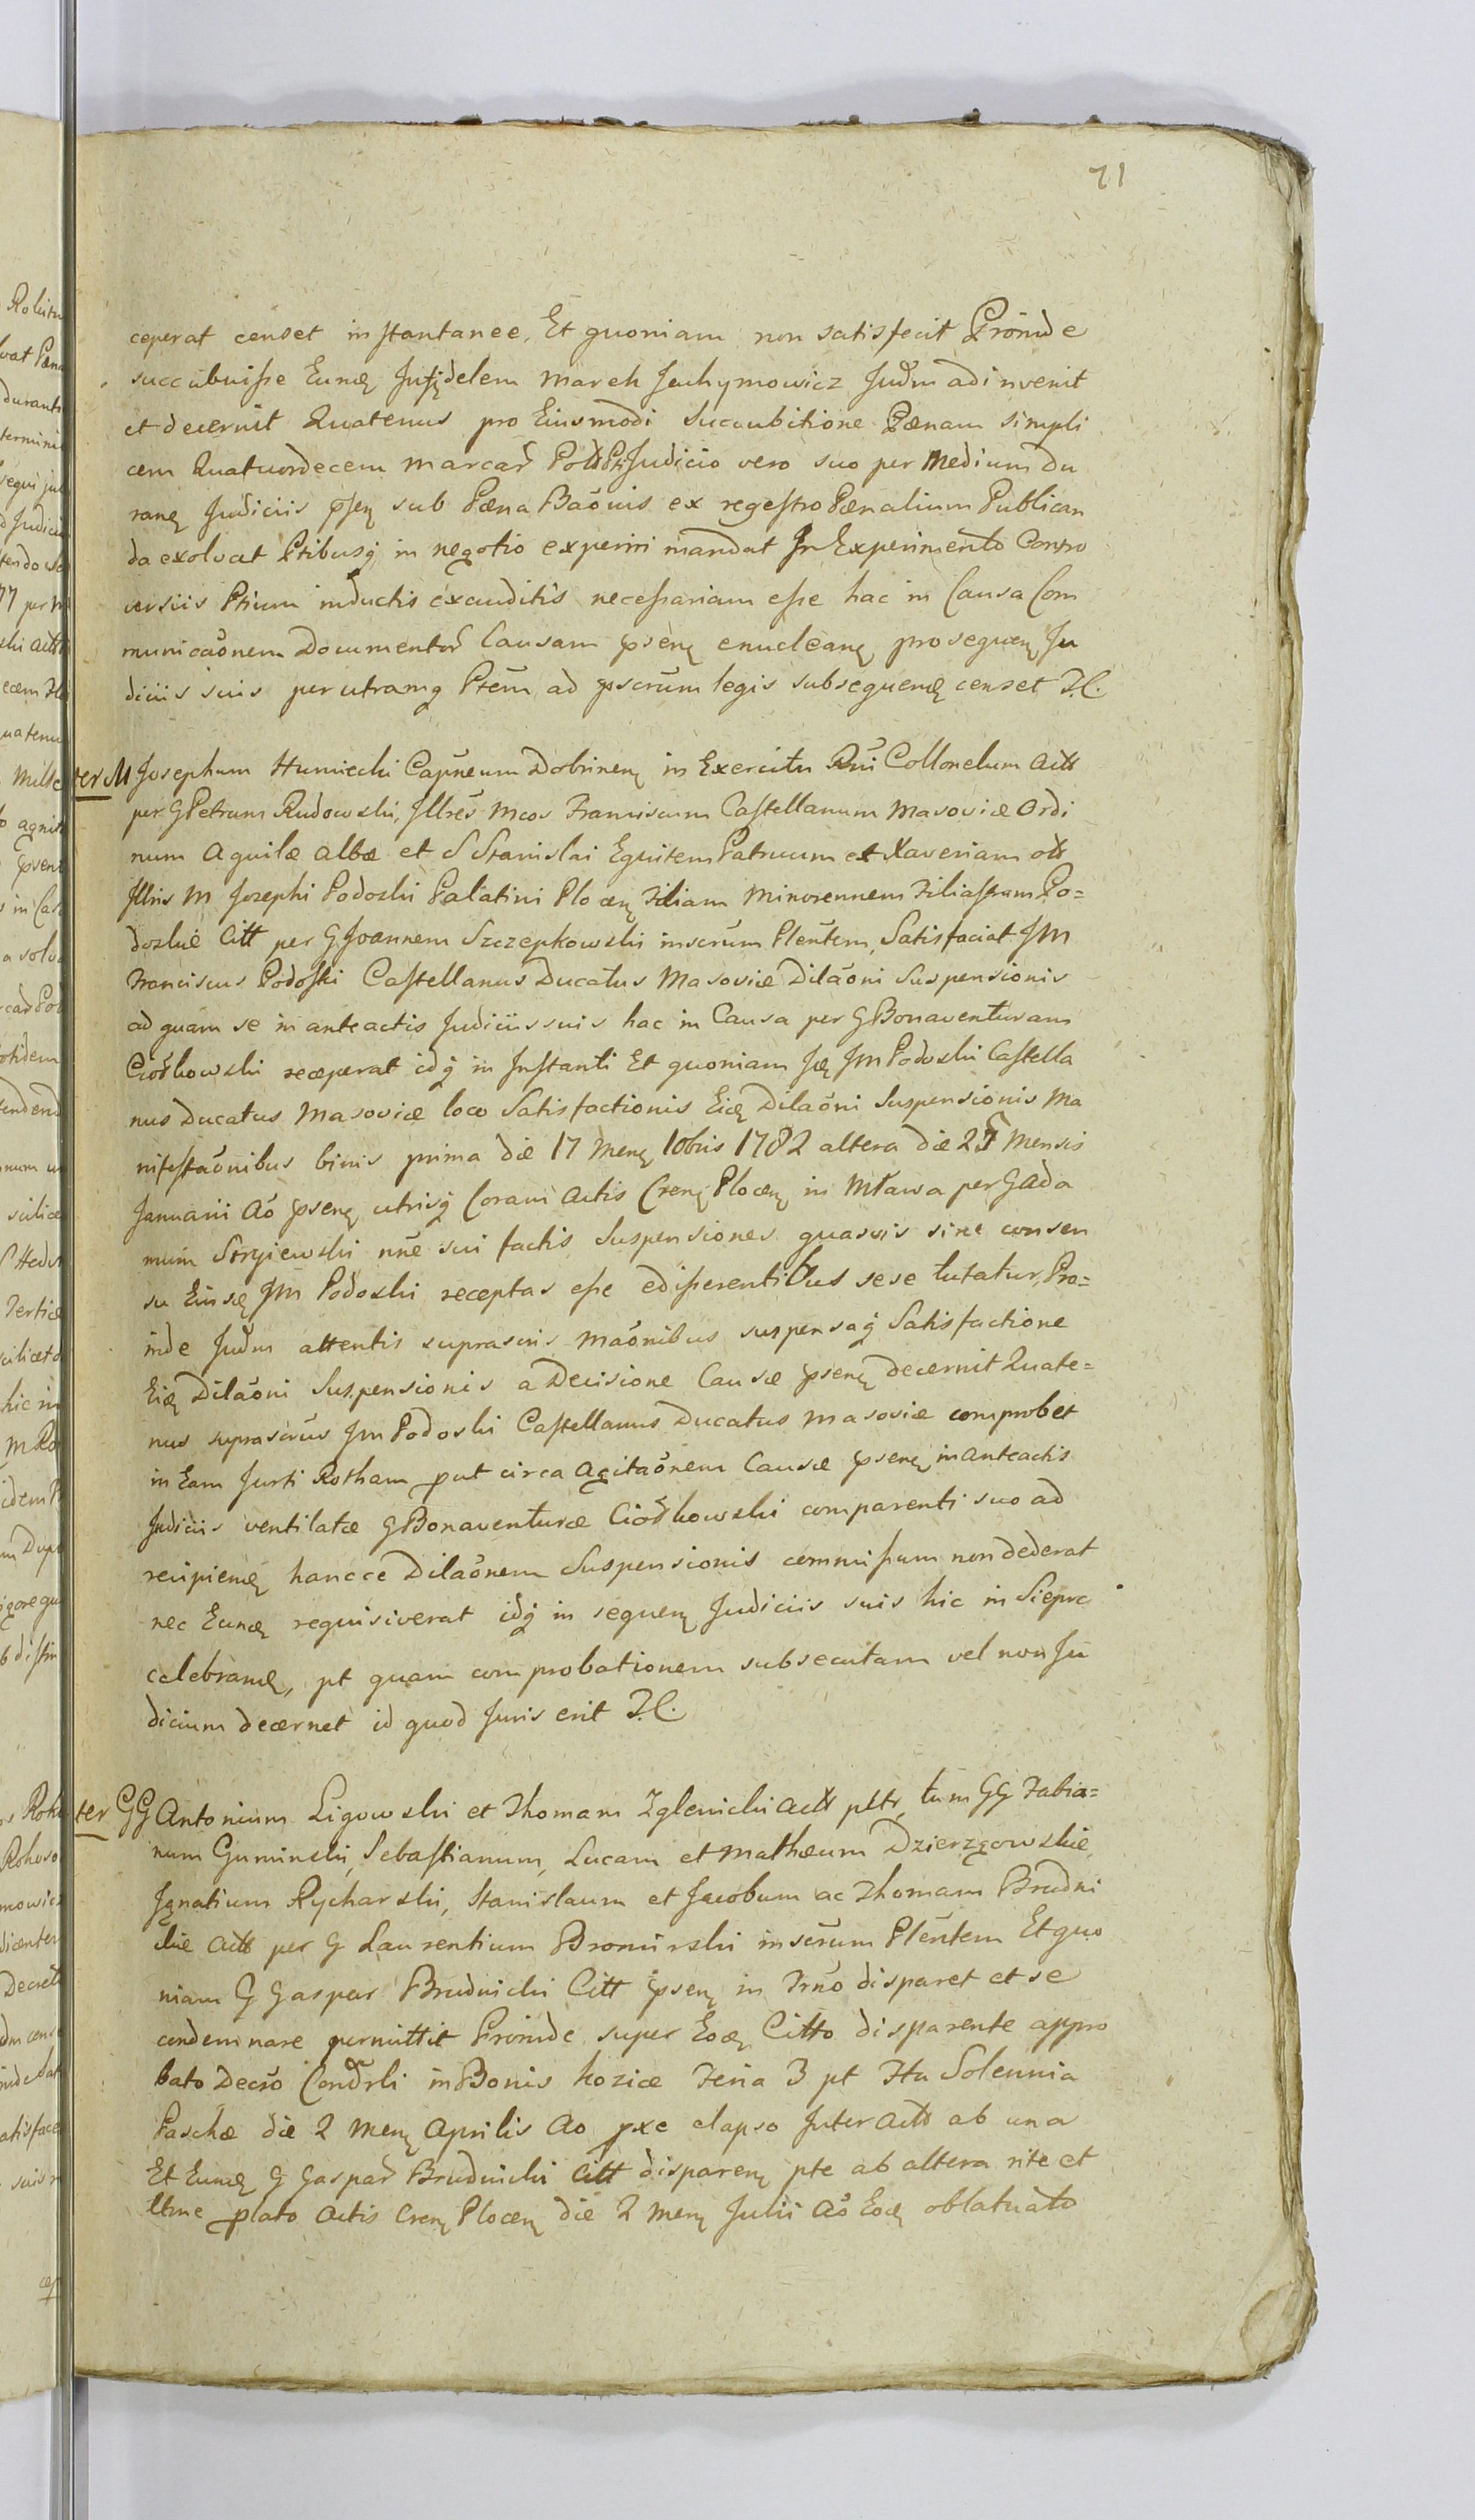 71
ceperat censet instantanee. Et quoniam non satisfecit Proinde
succubuisse Eundę Infidelem Marek Jachymowicz Judm adinvenit
et decernit Quatenus pro Eiusmodi Succubitione Pænam simpli
cem Quatuordecem marcar Poll Pti Judicio vero suo per Medium du
ranę Judiciis pseņ sub Pæna Baonis ex regestro Pænalium Publican
da exolvat Ptibusq in negotio experiri mandat In Experimento Contro
versiis Ptium inductis exauditis necessariam esse hac in Causa Com
municaonem Documentor Causam psenę enucleanę prosequenę Ju
diciis suis per utramq Ptem ad pscrum legis subsequenę censet J.C.
ter M Josephum Humiecki Capneum Dobrinenę in Exercitu Rni Collonelum Actt
per G Petrum Rudowski, Illres Mcos Franciscum Castellanum Masoviæ Ordi
num Aquilæ Albæ et S Stanislai Equitem Patruum et Xaveriam ott
Illris M Josephi Podoski Palatini Plocenę Filiam Minorennem Filiastram Po=
doskie Citt per G Joannem Szczepkowski inscrum Plentem, Satisfaciat IM
Franciscus Podoski Castellanus Ducatus Masoviæ Dilaoni Suspensionis
ad quam se in anteactis Judiciis suis hac in Causa per G Bonaventuram
Ciołkowski receperat idq in Instanti Et quoniam Ię IM Podoski Castella
nus Ducatus Masoviæ loco Satisfactionis Eidę Dilaoni Suspensionis Ma
nifestaonibus binis prima die 17 Menę 10bris 1782 altera die 25 Mensis
Januarii Ao psenę utrisq Coram Actis Crenę Plocenę in Mława per G Ada
mum Stryjewski nne sui factis Suspensiones quasvis sine consen
su Eiusdę IM Podoski receptas esse edisserentibus sese tutatur, Pro=
inde Judm attentis suprascris Maonibus suspensaq Satisfactione
Eidę Dilaoni Suspensionis a Decisione Causæ psenę decernit Quate=
nus suprascrus IM Podoski Castellanus Ducatus Masoviæ comprobet
in Eam Jurti Rotham put circa Agitaonem Causæ psenę in anteactis
Judiciis ventilatæ G Bonaventuræ Ciołkowski comparenti suo ad
recipiendę hancce Dilaonem Suspensionis commissum non dederat
nec Eundę requisiverat idq in sequenę Judiciis suis hic in Sieprc
celebrandę, pt quam comprobationem subsecutam vel non Ju
dicium decernet id quod Juris erit J.C.
ter GG Antonium Ligowski et Thomam Zglenicki Actt ptt, tum GG Fabia=
num Guminski, Sebastianum, Lucam et Mathæum Dzierzgowskie,
Ignatium Rycharski, Stanislaum et Jacobum ac Thomam Brudni
ckie Actt per G Laurentium Bromirski inscrum Plentem Et quo
niam G Gaspar Brudnicki Citt psenę in Trno disparet et se
condemnare permittit Proinde super Eodę Citto disparente appro
bato Decro Condrli in Bonis Kozice Feria 3 pt Fta Solennia
Paschæ die 2 Menę Aprilis Ao pxe elapso Inter Actt ab una
Et Eundę G Gaspar Brudnicki Citt disparenę pte ab altera rite et
ltme plato Actis Crenę Plocenę die 2 Menę Julii Ao Eodę oblatuato